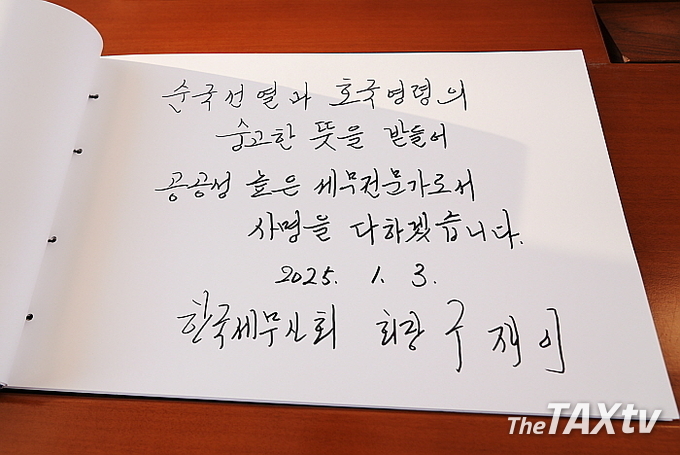 순국선열과 호국영령의
숭고한 뜻을 받들어
공공성 높은 세무전문가로서
사명을 다하겠습니다.
2025. 1. 3.
한국세무사회 회장 구재이
The TAXtv